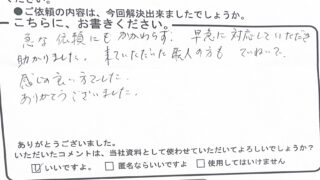 ください。
●ご依頼の内容は、今回解決出来ましたでしょうか。
こちらに、お書きください。
急な依頼にもかかわらず、早急に対応していただき
助かりました。来ていただいた職人の方も ていねいで、
感じの良い方でした。
ありがとうございました。
ありがとうございました。
いただいたコメントは、当社資料として使わせていただいてよろしいでしょうか？
☑いいですよ。 □匿名ならいいですよ □使用してはいけません